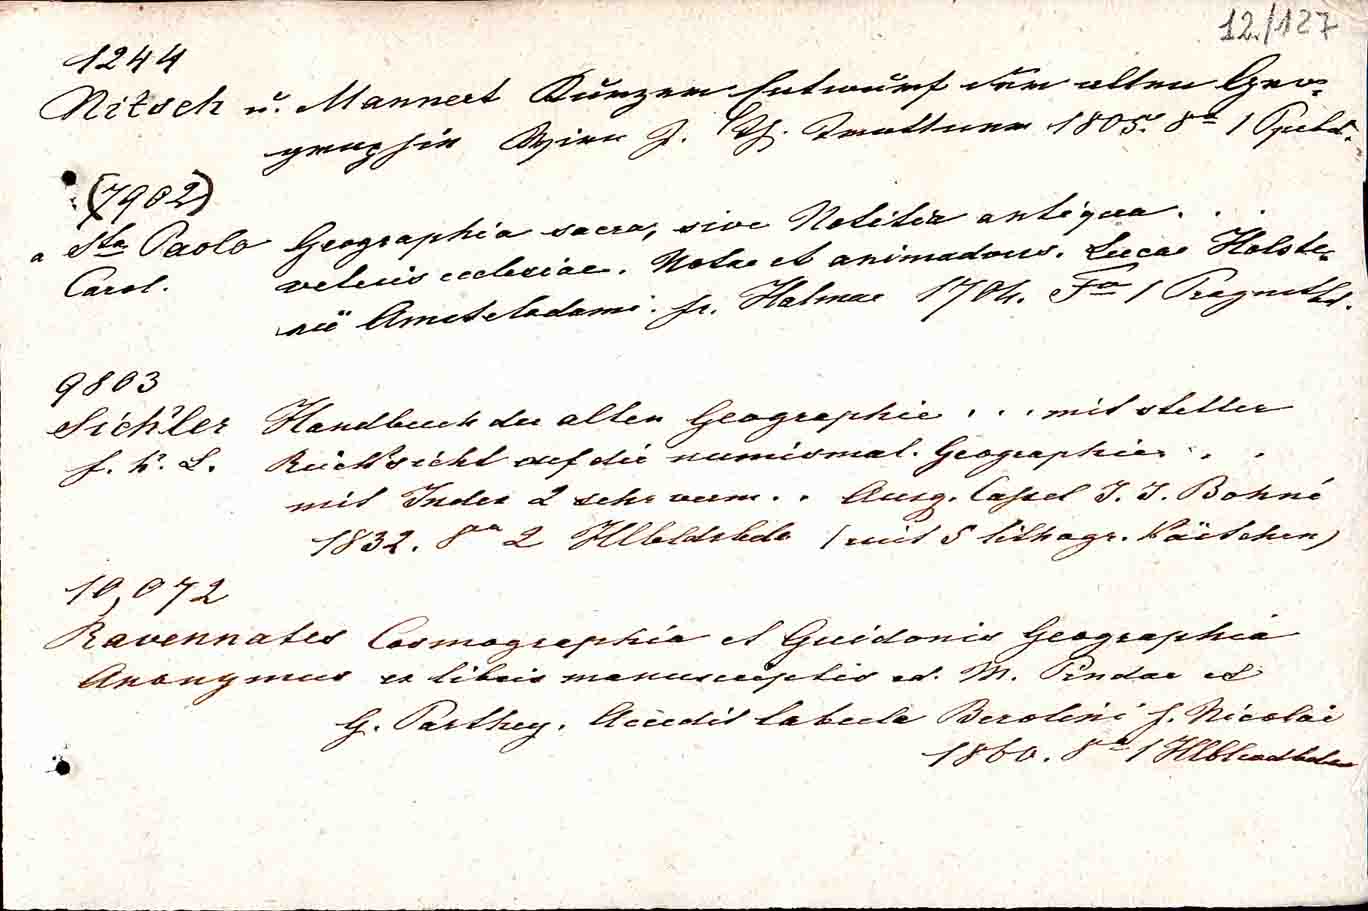 12/127
1244
Nitsch u. Mannert Kurzer Entwurf der alten Geo-
graphie Wien J. Th. Trattner 1805. 8o 1
(7902)
a Sta Paolo Geographia sacra, sive Notitia antiqua . . .
Carol. veteris ecclesiae. Notae et animadvers. Lucae Holste-
nii Amstelodami. fr. Halmae 1704. Fo 1
9803
Sickler Handbuch der alten Geographie . . . mit steter
f. k. L. Rücksicht auf die numismat. Geographie . .
mit Index 2 sehr verm. . . Ausg. Cassel J. J. Bohné
1832. 8o 2 Hlbldrbde (mit 5 lithogr. Kärtchen)
10,072
Ravennates Cosmographia et Guidonis Geographia
Anonymus ex libris manuscriptis ed. M. Pindar et
G. Parthey. Accedit tabula Berolini f. Nicolai
1860. 8o 1